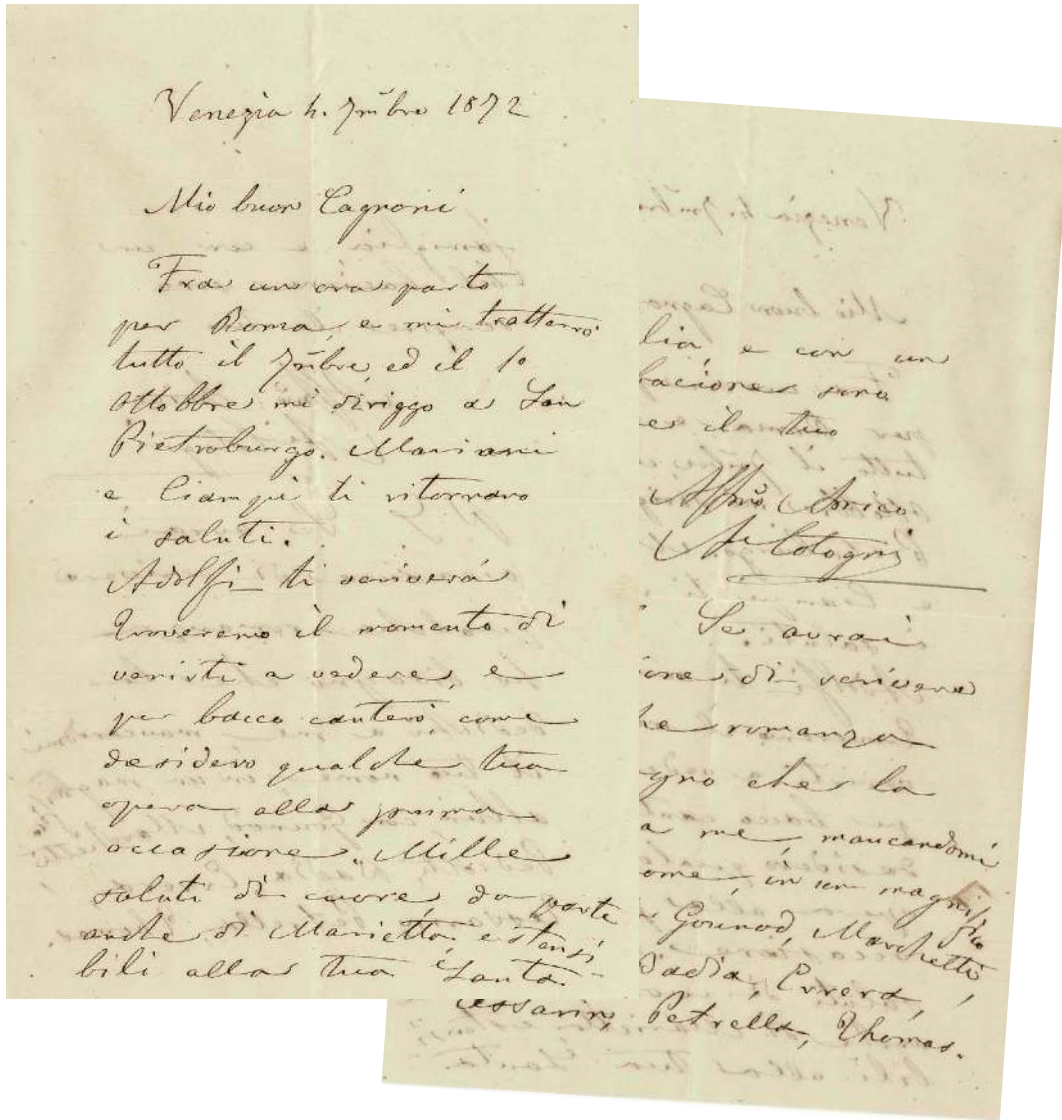 Venezia 4. 7mbre 1872
Mio buon Cagnoni
Fra un ora parto
per Roma, e mi tratterrò
tutto il 7mbre, ed il 1º
Ottobbre mi diriggo a San
Pietroburgo. Mariani
e Ciampi ti ritornano
i saluti.
Adolfi ti scriverà
Troveremo il momento di
venirti a vedere, e
per bacco canterò come
desidero qualche tua
opera alla prima
occasione. Mille
saluti di cuore, da parte
anche di Marietta estensi-
bili alla tua Santa
lia, e con un
bacione sono
il tuo
Affmo Amico
A. Cotogni
Se avrai
ione di scrivere
he romanza
gno che la
a me, mancandomi
ome, in un magnifico
Gounod, Marchetti,
Badia, Errera,
essarin, Petrella, Thomas.